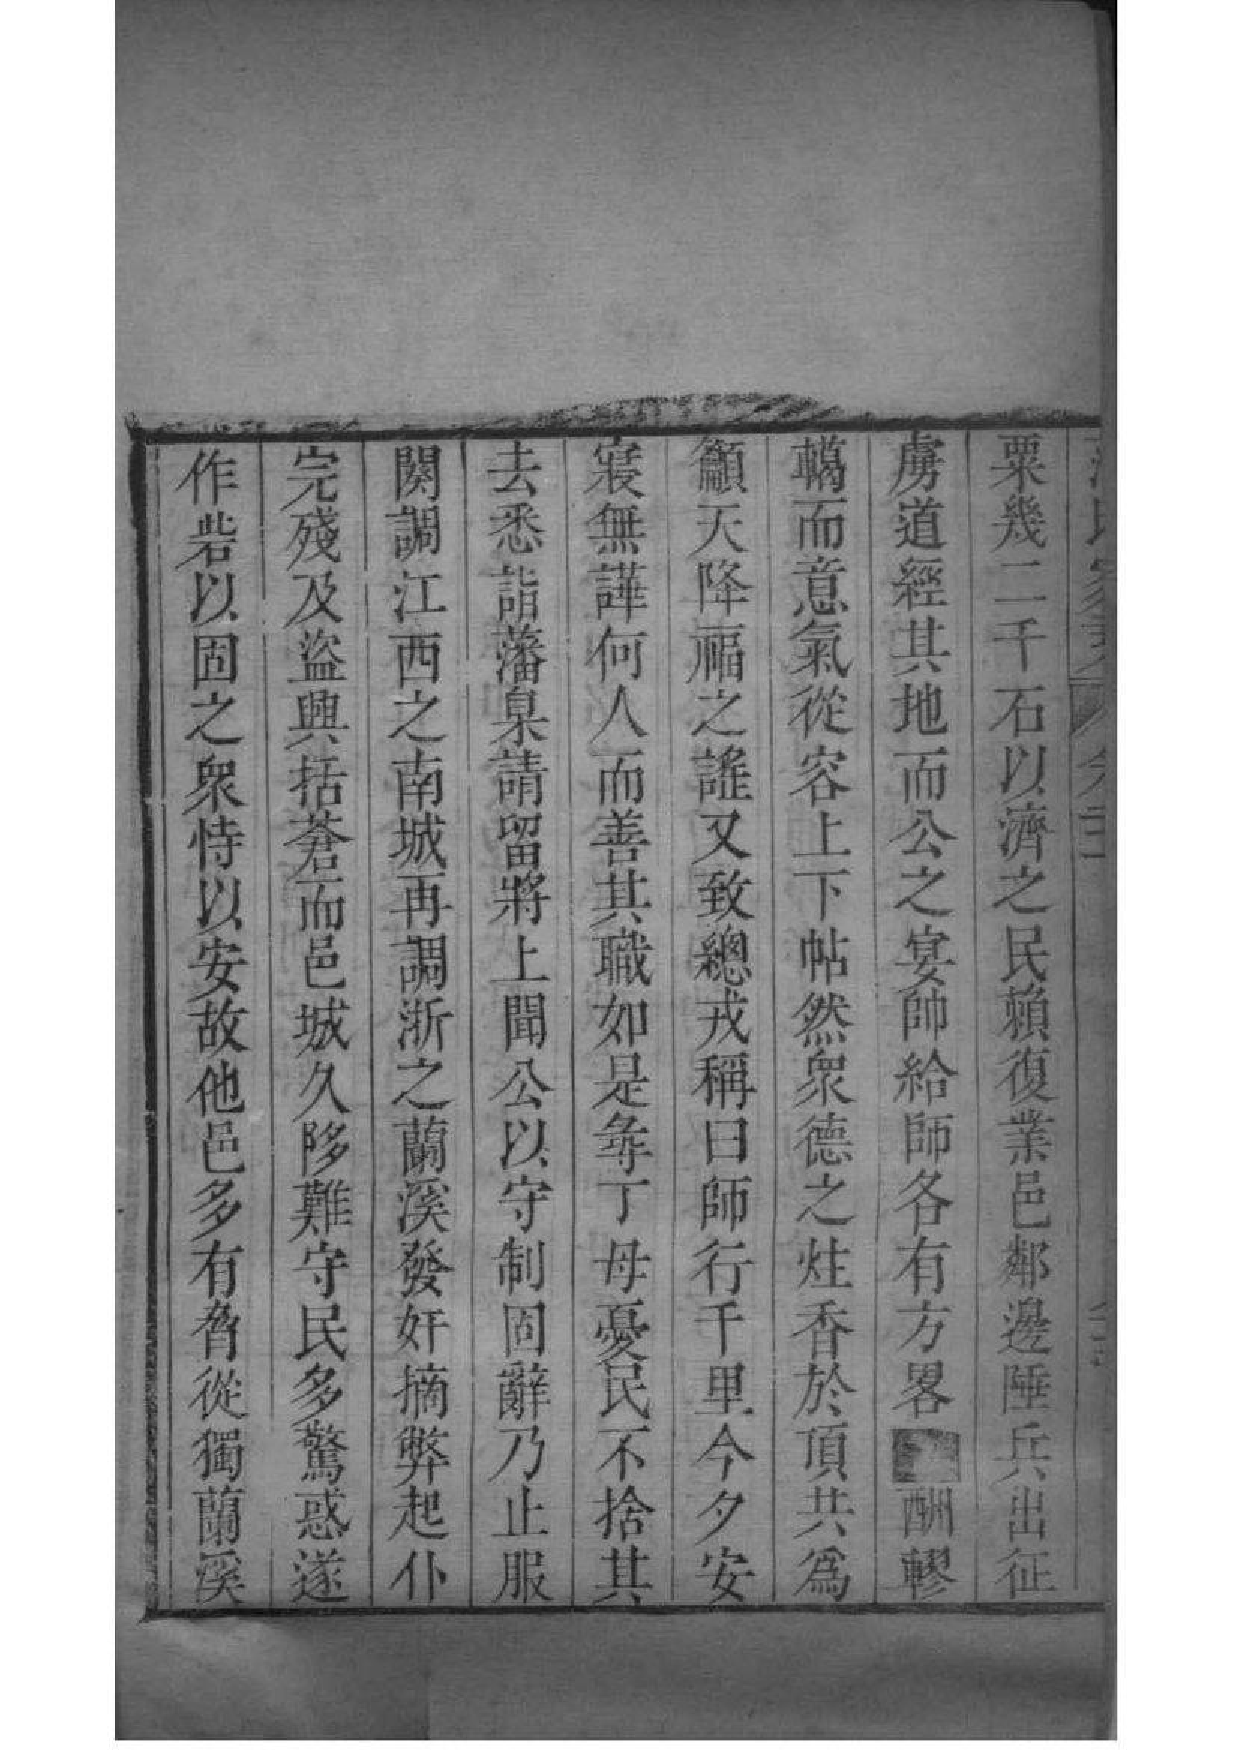 粟幾二千石以濟之民賴復業邑鄰邊陲兵出征
虜道經其地而公之宴帥給師各有方畧酬轇
轕而意氣從容上下帖然衆德之炷香於頂共爲
籲天降福之謠又致總戎稱曰師行千里今夕安
寢無譁何人而善其職如是尋丁母憂民不捨其
去悉詣藩臬請留將上聞公以守制固辭乃止服
闋調江西之南城再調浙之蘭溪發奸摘弊起仆
完殘及盜興括蒼而邑城久陊難守民多驚惑遂
作砦以固之衆恃以安故他邑多有脅從獨蘭溪